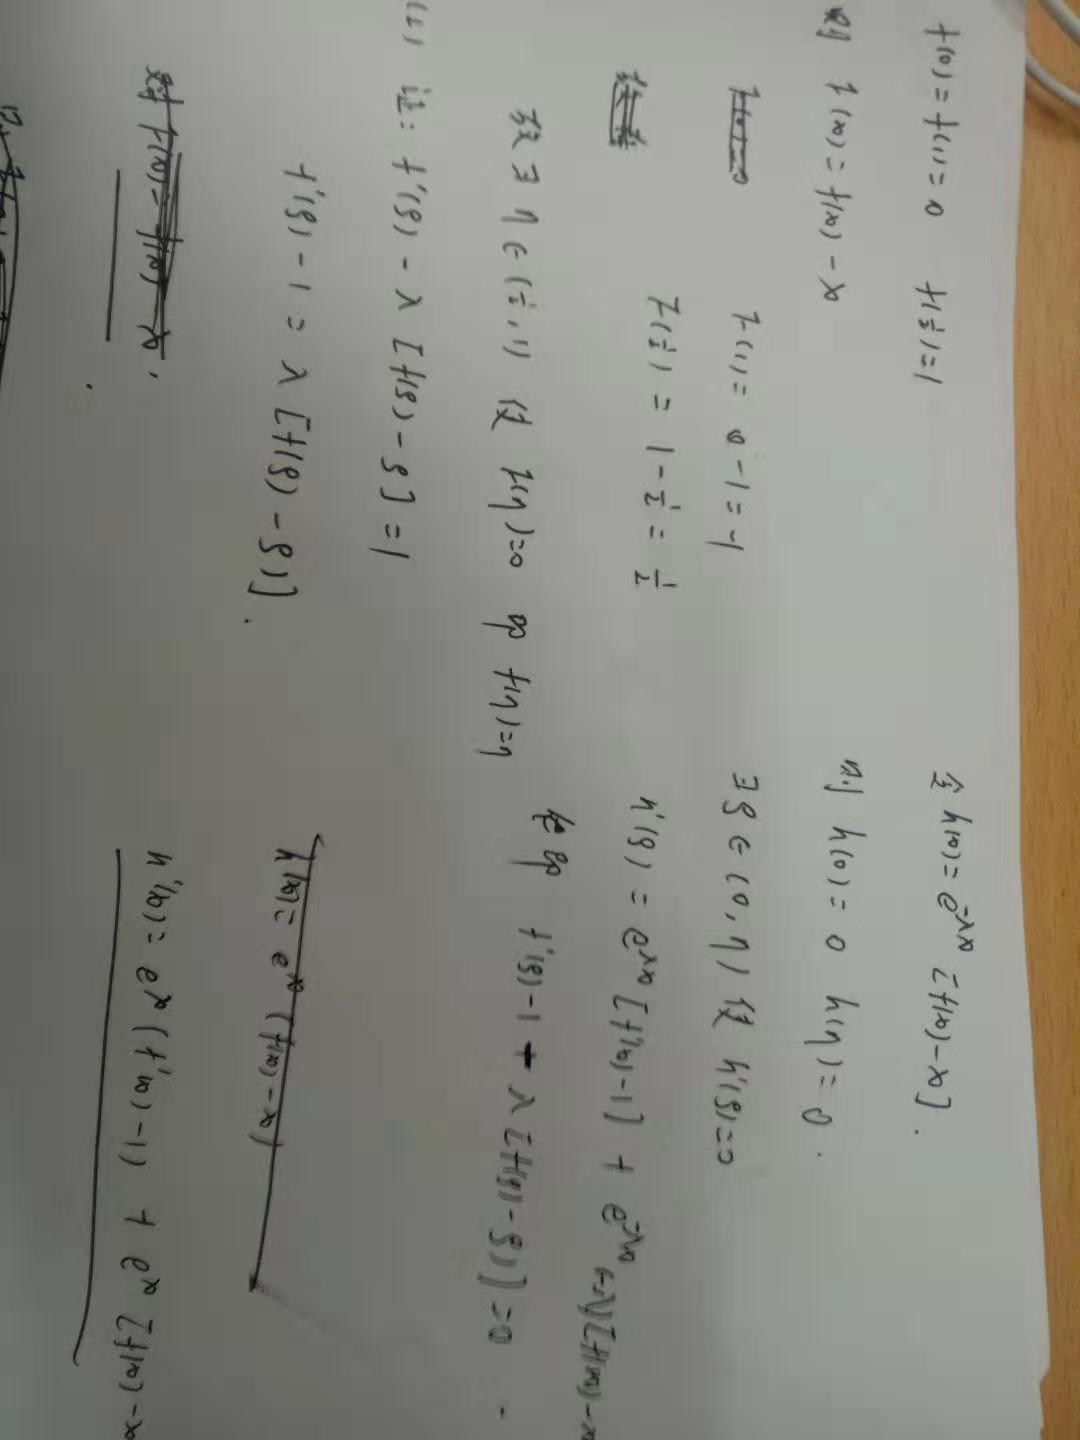 f(0)=f(1)=0 f(½)=1
则 F(x)=f(x)-x
F(1)=0-1=-1
F(½)=1-½=½
故∃η∈(½,1) 使 F(η)=0 即 f(η)=η
(2) 证: f'(ξ)-λ[f(ξ)-ξ]=1
f'(ξ)-1=λ[f(ξ)-ξ)].
对 F(x)=f(x)-x,
令 h(x)=e^{-λx}[f(x)-x].
则 h(0)=0 h(η)=0.
∃ξ∈(0,η) 使 h'(ξ)=0
h'(ξ)=e^{-λx}[f'(x)-1]+e^{-λx}(-λ)[f(x)-x
即 f'(ξ)-1-λ[f(ξ)-ξ)]=0
h(x)=e^x(f(x)-x)
h'(x)=e^x(f'(x)-1)+e^x[f(x)-x